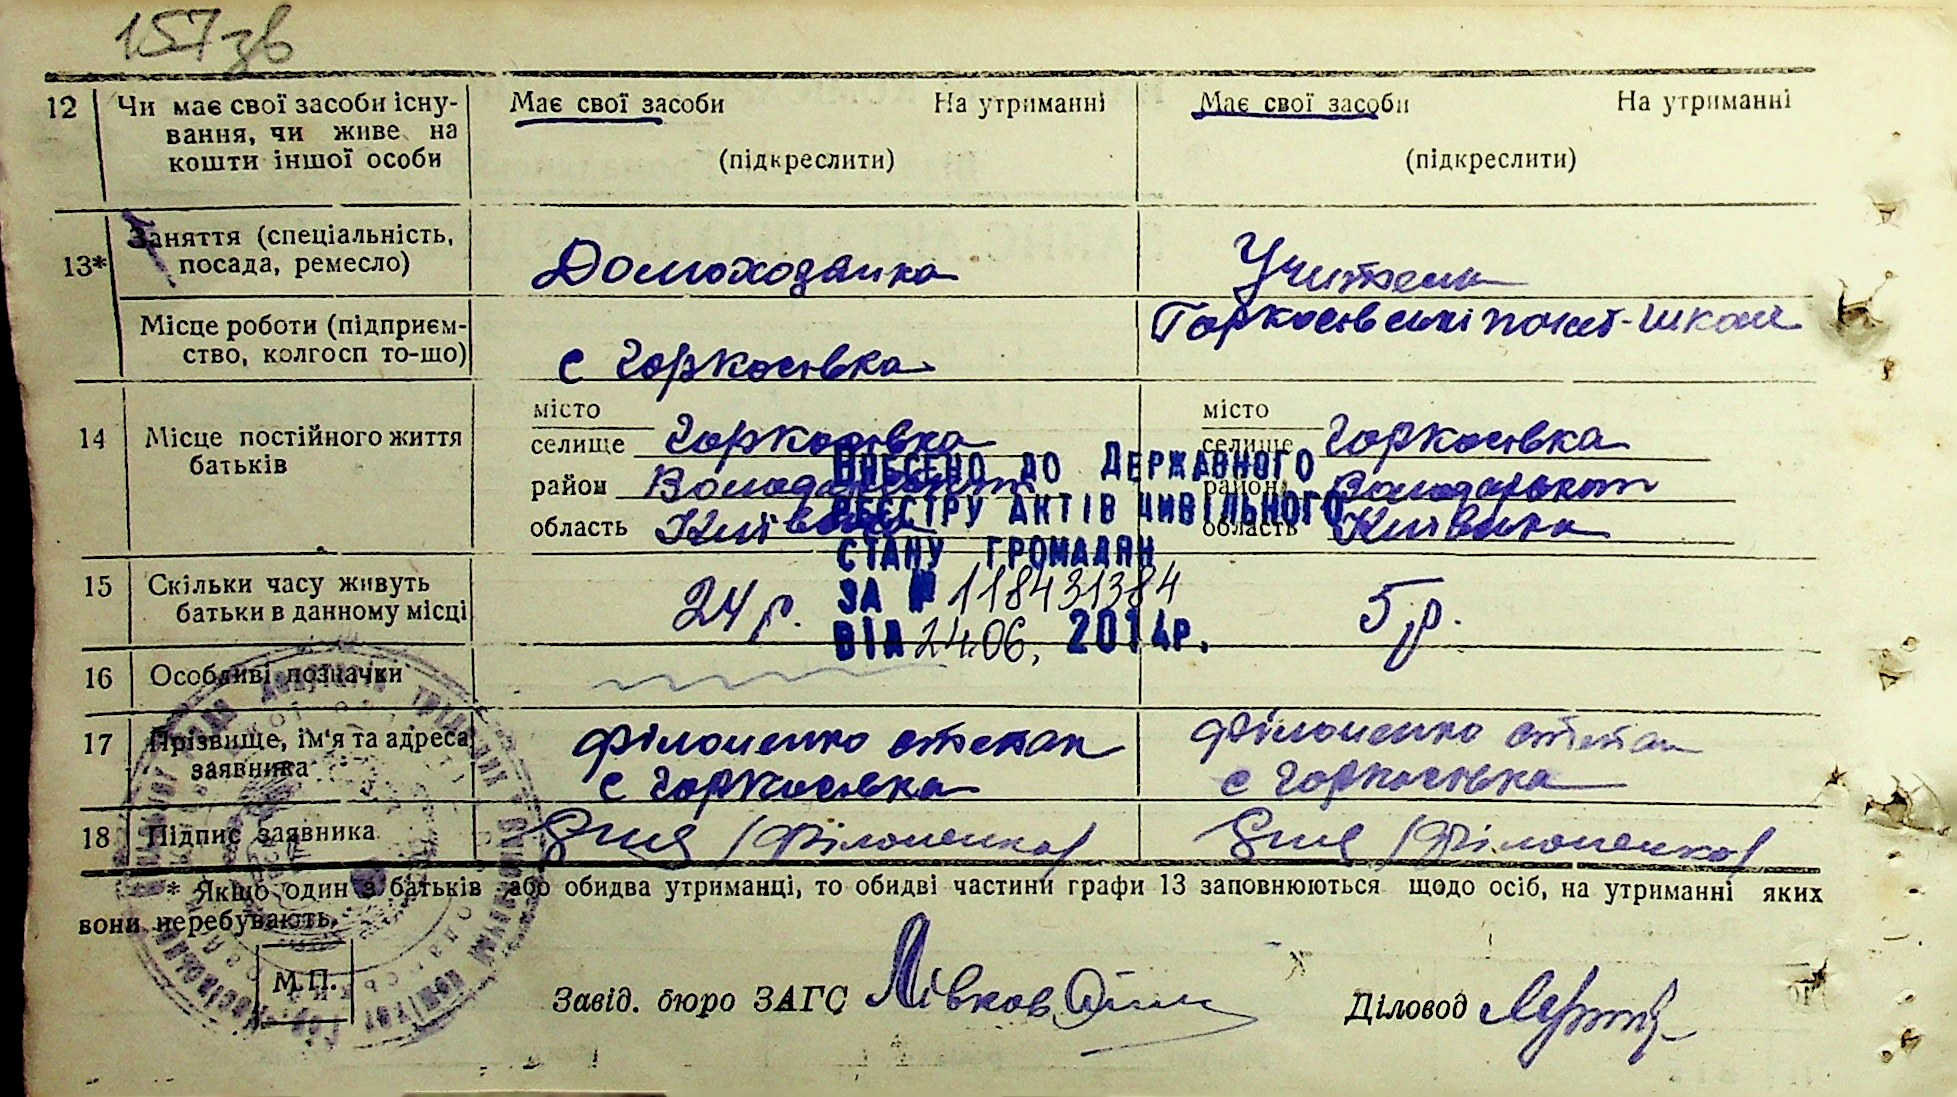 157 зв
12 Чи має свої засоби існу-
вання, чи живе на
кошти іншої особи
Має свої засоби На утриманні
(підкреслити)
Має свої засоби На утриманні
(підкреслити)
13* Заняття (спеціальність,
посада, ремесло)
Домоходзяйка
Учитель
Місце роботи (підприєм-
ство, колгосп то-що)
с Горкосівка
Горкосівські почат-школи
14 Місце постійного життя
батьків
місто
селище Горкосівка
район Володарський
область Київська
місто
селище Горкосівка
район Володарський
область Київська
ВНЕСЕНО ДО ДЕРЖАВНОГО
РЕЄСТРУ АКТІВ ЦИВІЛЬНОГО
СТАНУ ГРОМАДЯН
ЗА № 118431384
ВІД 24.06. 2014р.
15 Скільки часу живуть
батьки в данному місці
24 р.
5 р.
16 Особливі позначки
17 Прізвище, ім'я та адреса
заявника
Філоненко степан
с Горкосівка
Філоненко степан
с Горкосівка
18 Підпис заявника
(Філоненко)
(Філоненко)
* Якщо один з батьків або обидва утриманці, то обидві частини графи 13 заповнюються щодо осіб, на утриманні яких
вони перебувають.
М.П.
Завід. бюро ЗАГС
Діловод